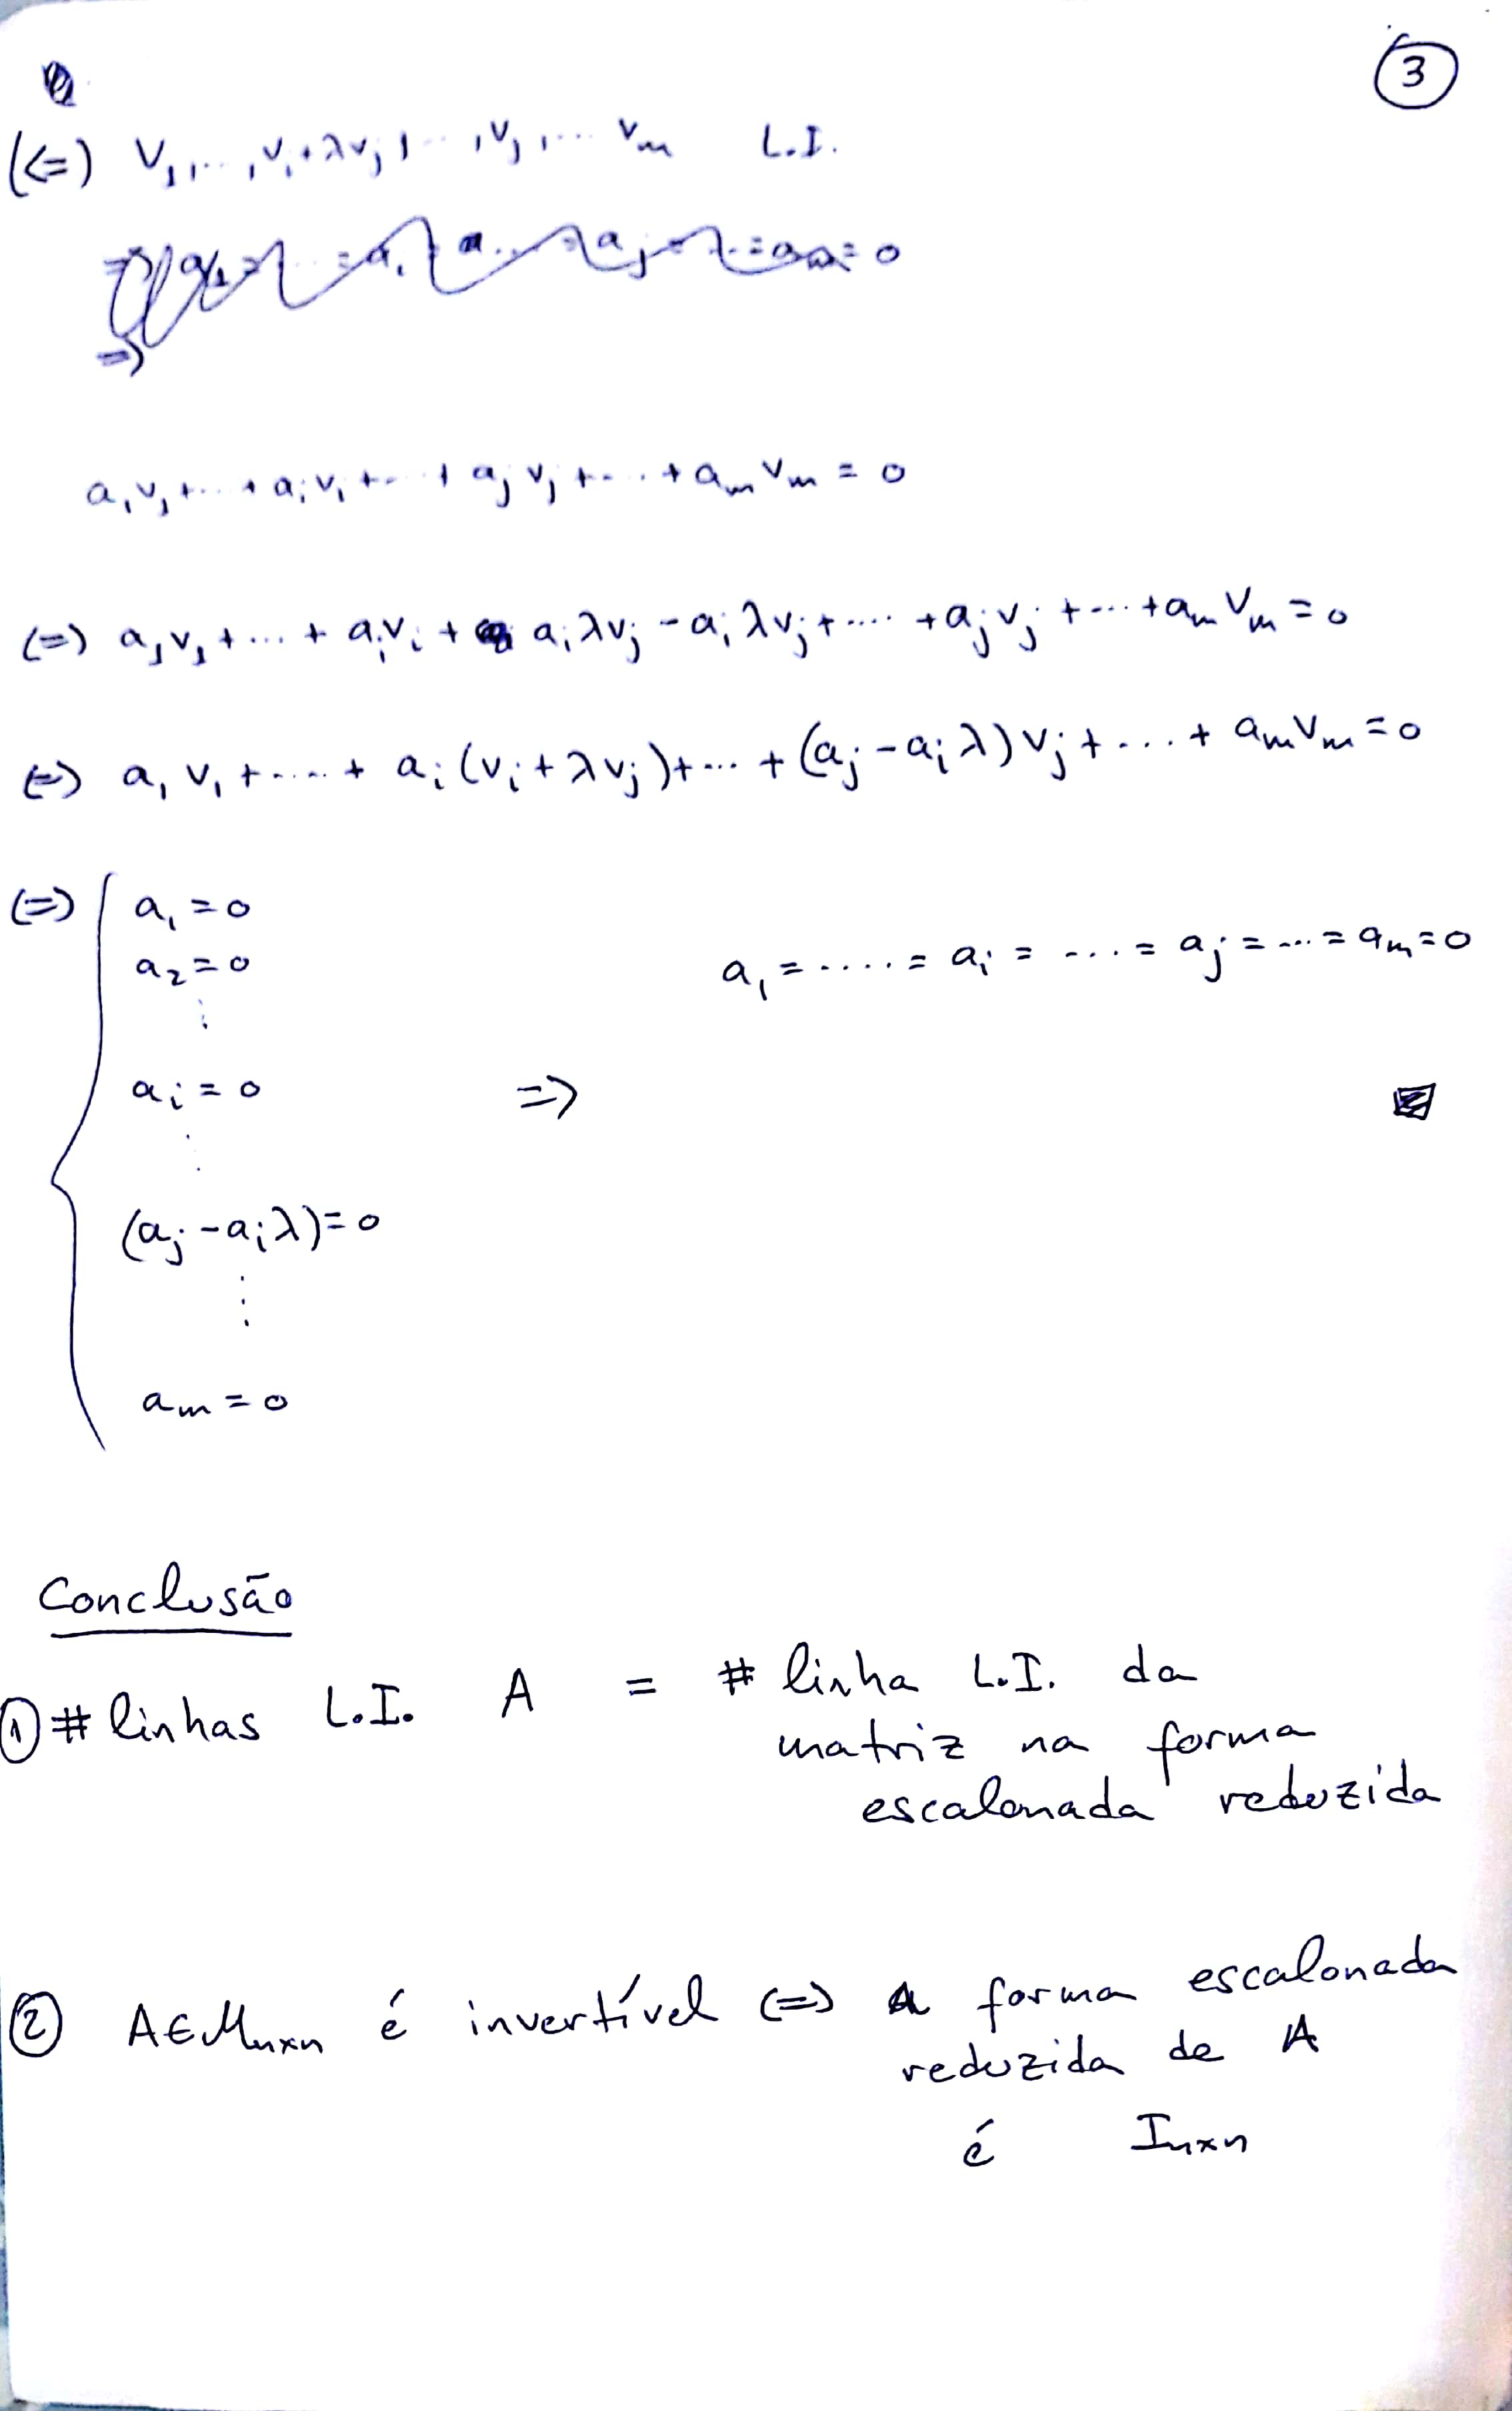 ③
(<=) v₁,...,vᵢ+λvⱼ,...,vⱼ,...vₘ L.I.
=>
a₁v₁+...+aᵢvᵢ+...+aⱼvⱼ+...+aₘvₘ=0
(=) a₁v₁+...+aᵢvᵢ+aᵢλvⱼ-aᵢλvⱼ+....+aⱼvⱼ+...+aₘvₘ=0
(=) a₁v₁+....+aᵢ(vᵢ+λvⱼ)+...+(aⱼ-aᵢλ)vⱼ+...+aₘvₘ=0
(=) { a₁=0
a₂=0
⋮
aᵢ=0
⋮
(aⱼ-aᵢλ)=0
⋮
aₘ=0
=> a₁=....=aᵢ=...=aⱼ=...=aₘ=0
Conclusão
① # linhas L.I. A = # linha L.I. da
matriz na forma
escalonada reduzida
② A∈Mₙₓₙ é invertível (=) a forma escalonada
reduzida de A
é Iₙₓₙ